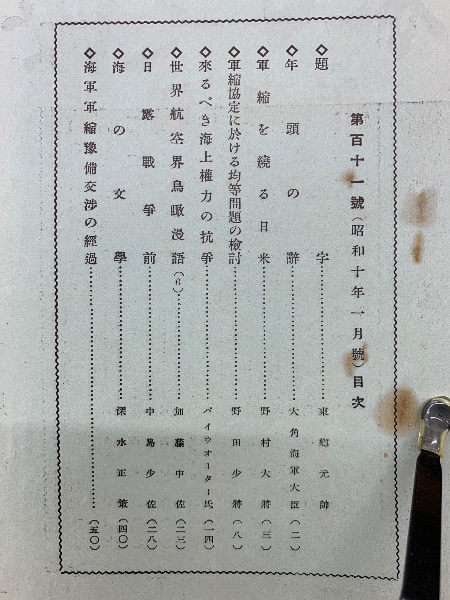 第百十一號(昭和十年一月號)目次
◇題字……………東郷元帥
◇年頭の辭……………大角海軍大臣(二)
◇軍縮を繞る日米……………野村大將(三)
◇軍縮協定に於ける均等問題の檢討……………野田少將(八)
◇來るべき海上權力の抗爭……………バイウオーター氏(一四)
◇世界航空界鳥瞰漫語(6)……………加藤中佐(二三)
◇日露戰爭前……………中島少佐(二八)
◇海の文學……………深水正策(四〇)
◇海軍軍縮豫備交渉の經過……………(五〇)